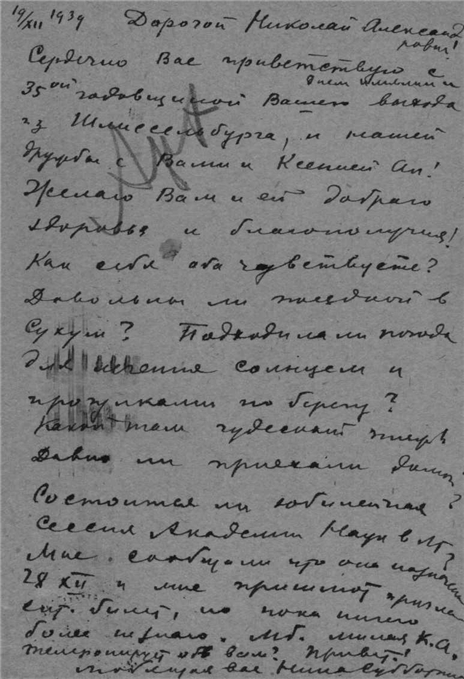 19/XII 1939 Дорогой Николай Александ
рович!
Сердечно Вас приветствую с
днем
35ой годовщиной Вашего выхода
из Шлиссельбурга, и нашей
дружбы с Вами и Ксенией Ал!
Желаю Вам и ей доброго
здоровья и благополучия!
Как себя оба чувствуете?
Довольны ли поездкой в
Сухум? Подходила ли погода
для лечения солнцем и
прогулками по берегу?
Какой там чудесный
Давно ли приехали домой?
Состоится ли юбилейная
сессия Академии Наук в М?
Мне сообщали что она назначена
28 XII и мне пришлют
билет, но пока ничего
более не знаю. Мб. милая К.А.
телефонирует Вам? Привет!
любящая вас Нина Субботина